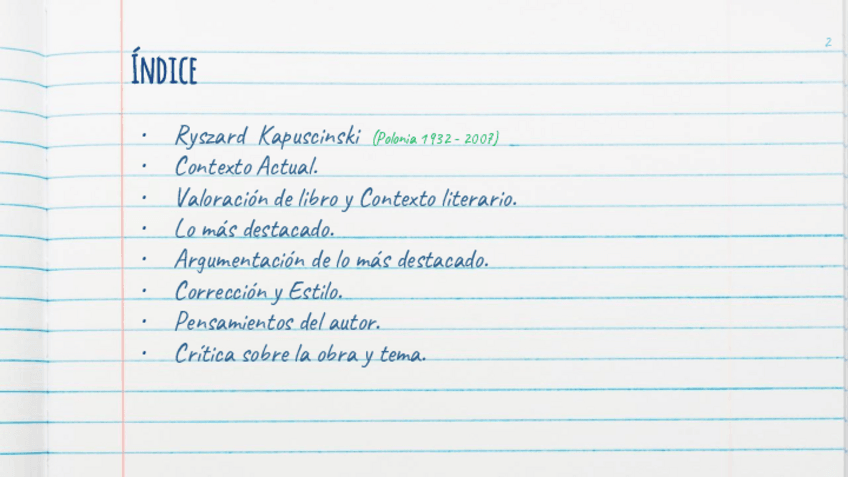 2
ÍNDICE
• Ryszard Kapuscinski (Polonia 1932 - 2007)
• Contexto Actual.
• Valoración de libro y Contexto literario.
• Lo más destacado.
• Argumentación de lo más destacado.
• Corrección y Estilo.
• Pensamientos del autor.
• Crítica sobre la obra y tema.